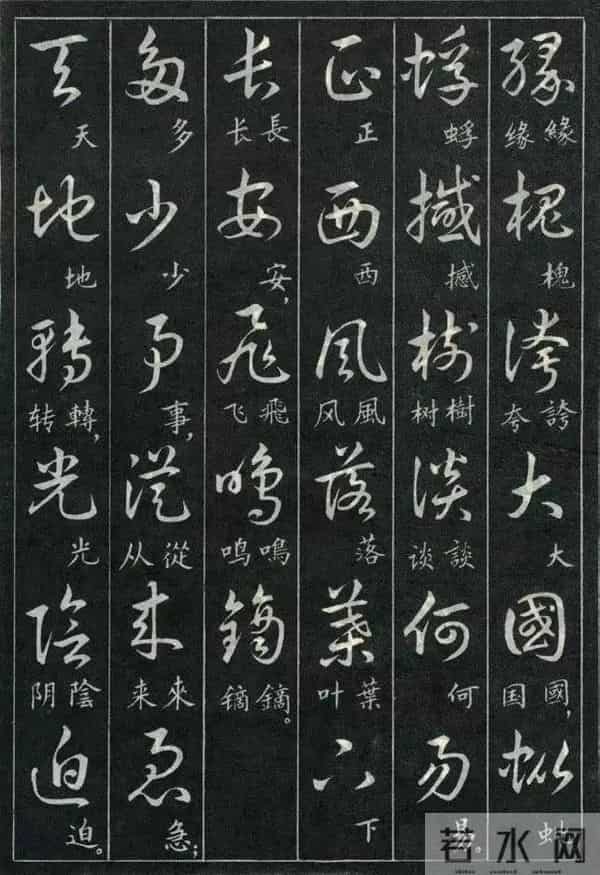 緣槐誇大國蚍
緣缘 槐 誇夸 大 國国， 蚍
蜉撼樹談何易
蜉 撼 樹树 談谈 何 易。
正西風落葉下
正 西 風风 落 葉叶 下
長安飛鳴鏑
長长 安， 飛飞 鳴鸣 鏑镝。
多少事從來急
多 少 事， 從从 來来 急；
天地轉光陰迫
天 地 轉转， 光 陰阴 迫。
若水网